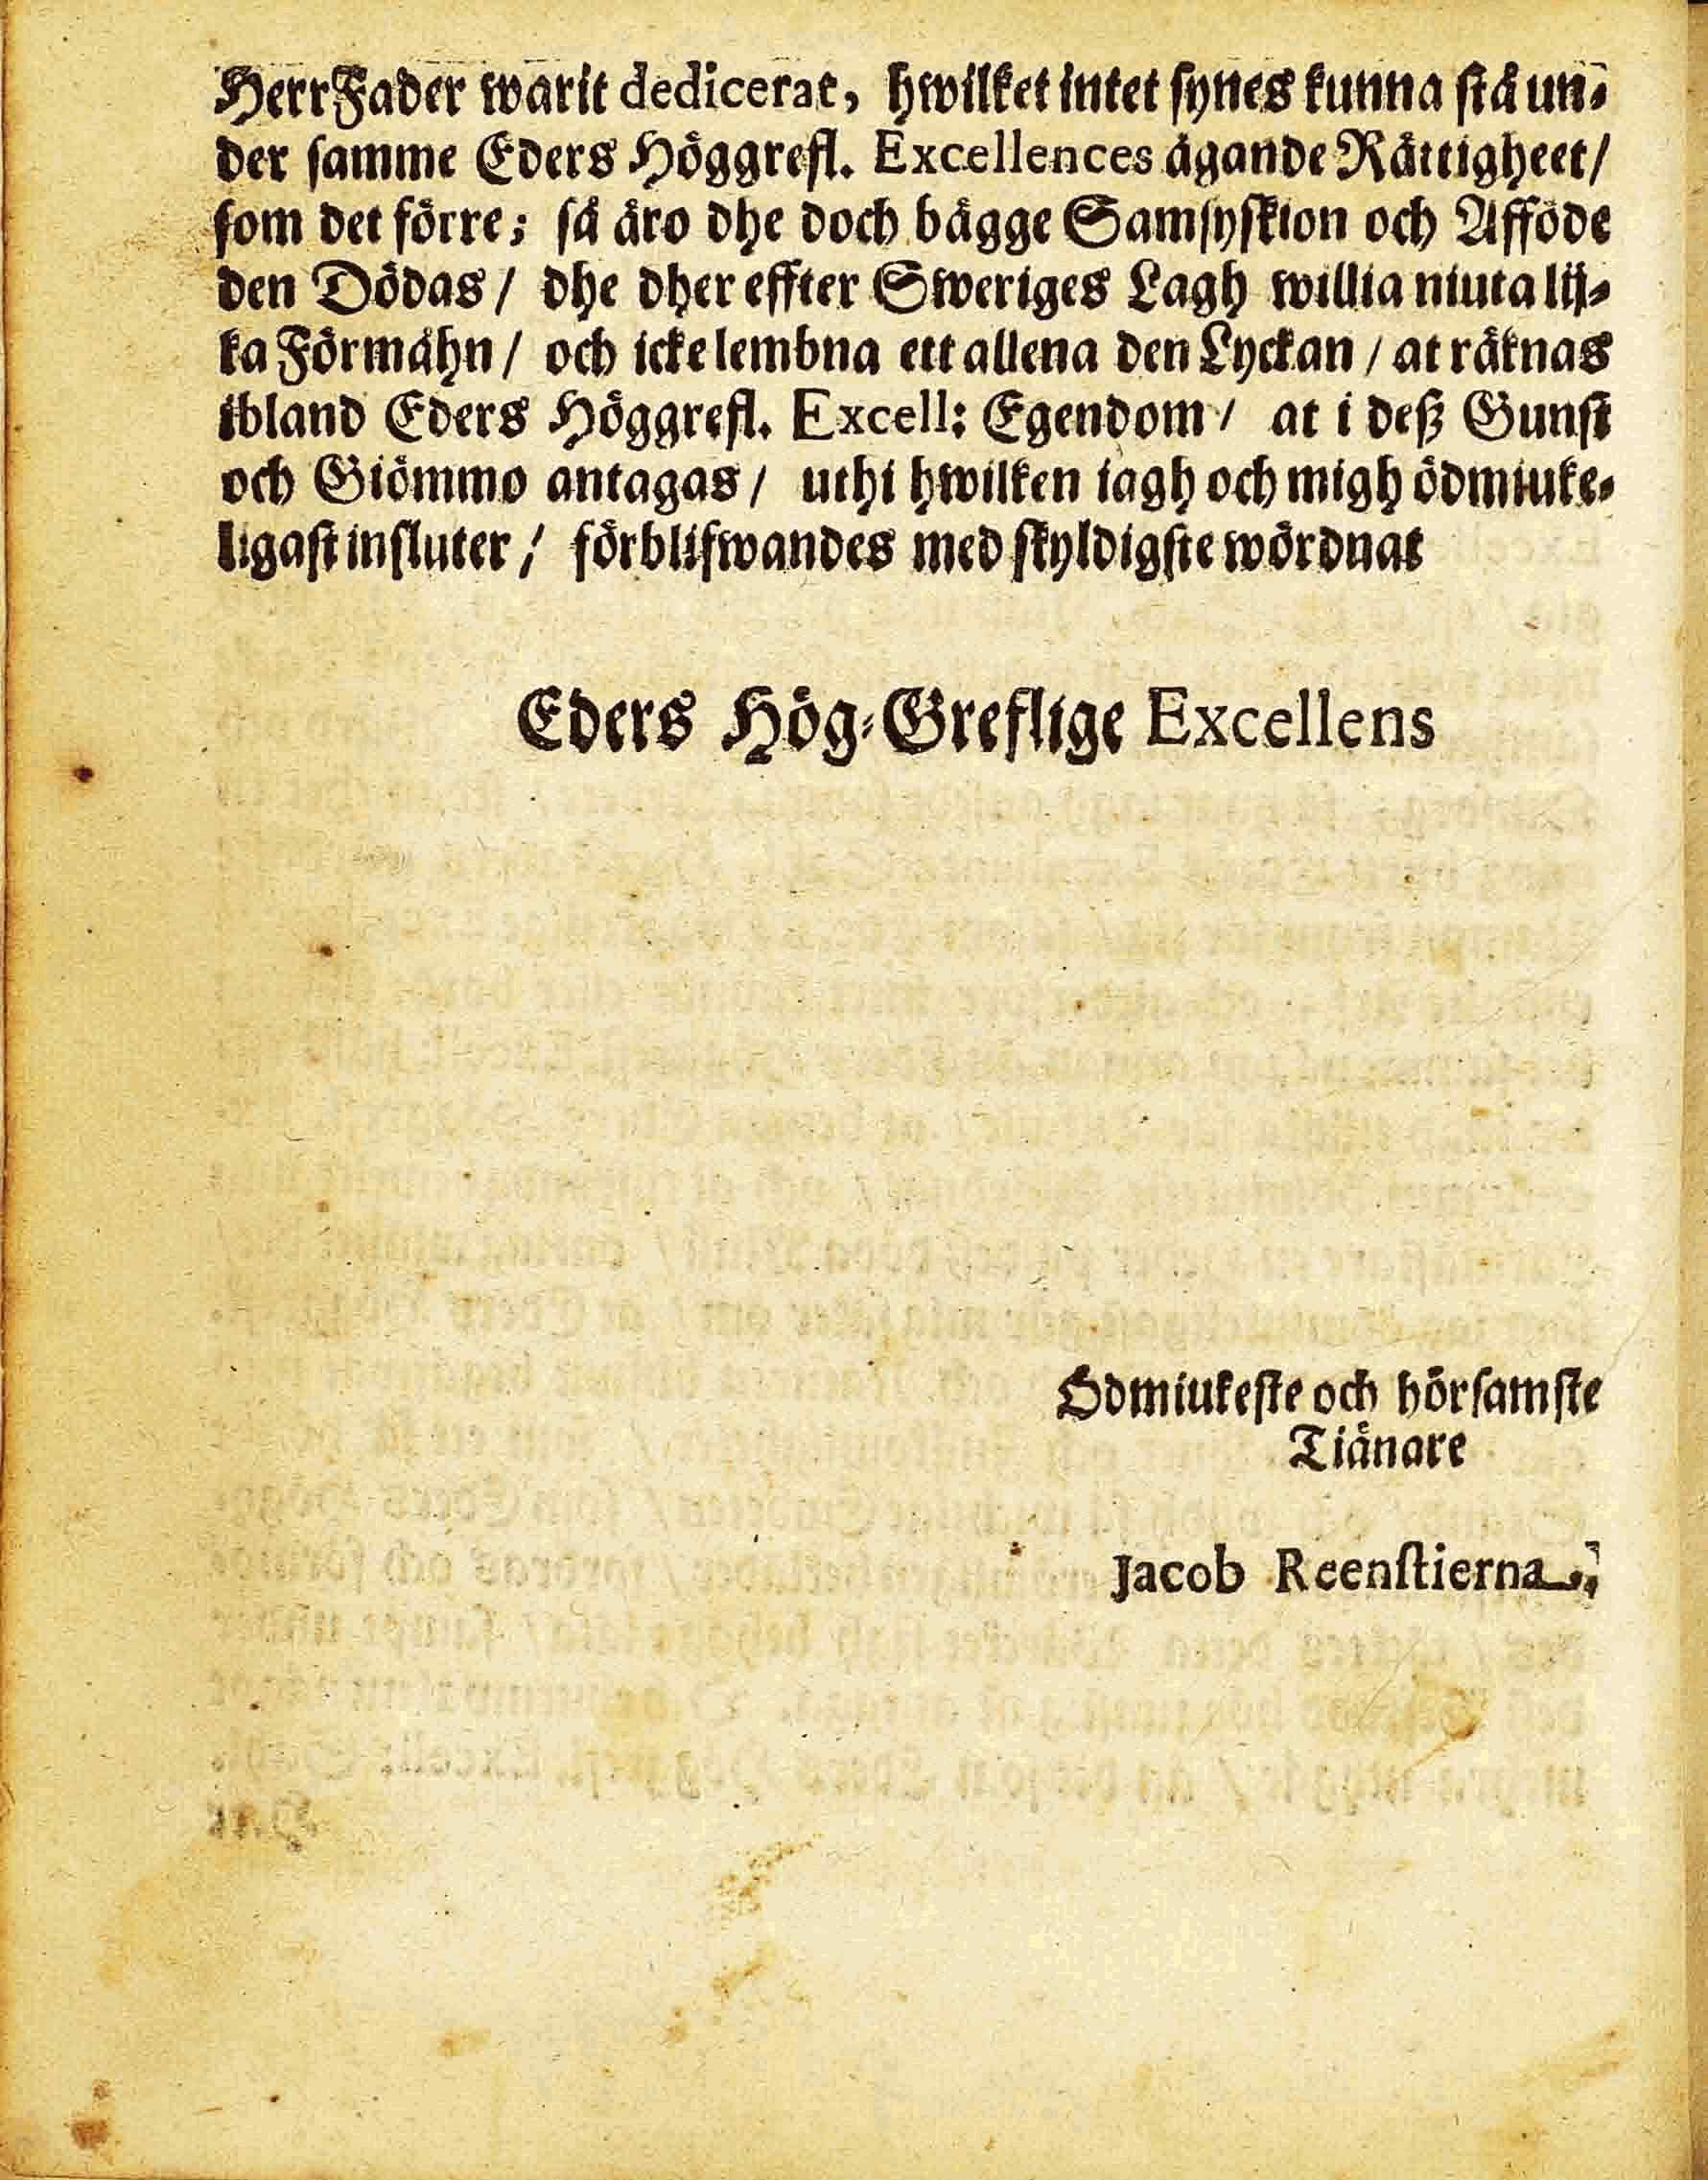 Herr Fader warit dedicerat, hwilket intet synes kunna stå un-
der samme Eders Höggrefl. Excellences ägande Rättigheet/
som det förre; så äro dhe doch bägge Samsyskion och Afföde
den Dödas/ dhe dher effter Sweriges Lagh willia niuta lij-
ka Förmåhn/ och icke lembna ett allena den Lyckan/ at räknas
ibland Eders Höggrefl. Excell: Egendom/ at i deß Gunst
och Giömmo antagas/ uthi hwilken iagh och migh ödmiuke-
ligast insluter/ förblifwandes med skyldigste wördnat
Eders Hög-Greflige Excellens
Ödmiukeste och hörsamste
Tiänare
Jacob Reenstierna.